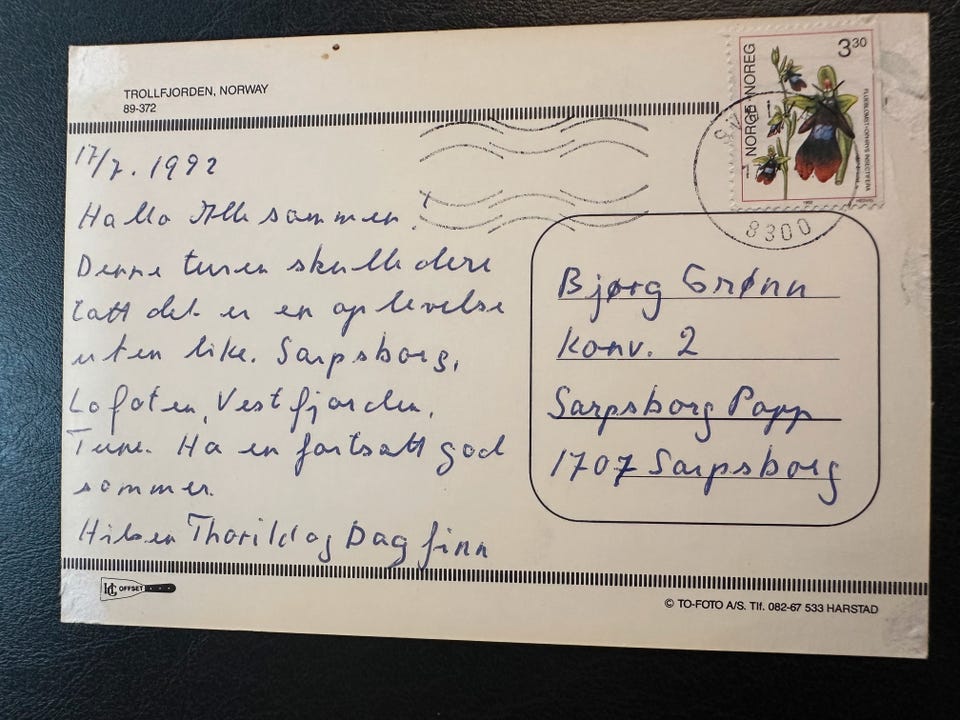 TROLLFJORDEN, NORWAY
89-372
NORGE·NOREG
3³⁰
FLUEBLOMST-OPHRYS INSECTIFERA
SVOL
8300
17/7. 1992
Hallo Alle sammen!
Denne turen skulle dere
tatt det er en oplevelse
uten like. Sarpsborg,
Lofoten, Vestfjorden,
Tune. Ha en fortsatt god
sommer.
Hilsen Thorild og Dag finn
Bjørg Grønn
Konv. 2
Sarpsborg Papp
1707 Sarpsborg
OFFSET
© TO-FOTO A/S. Tlf. 082-67 533 HARSTAD